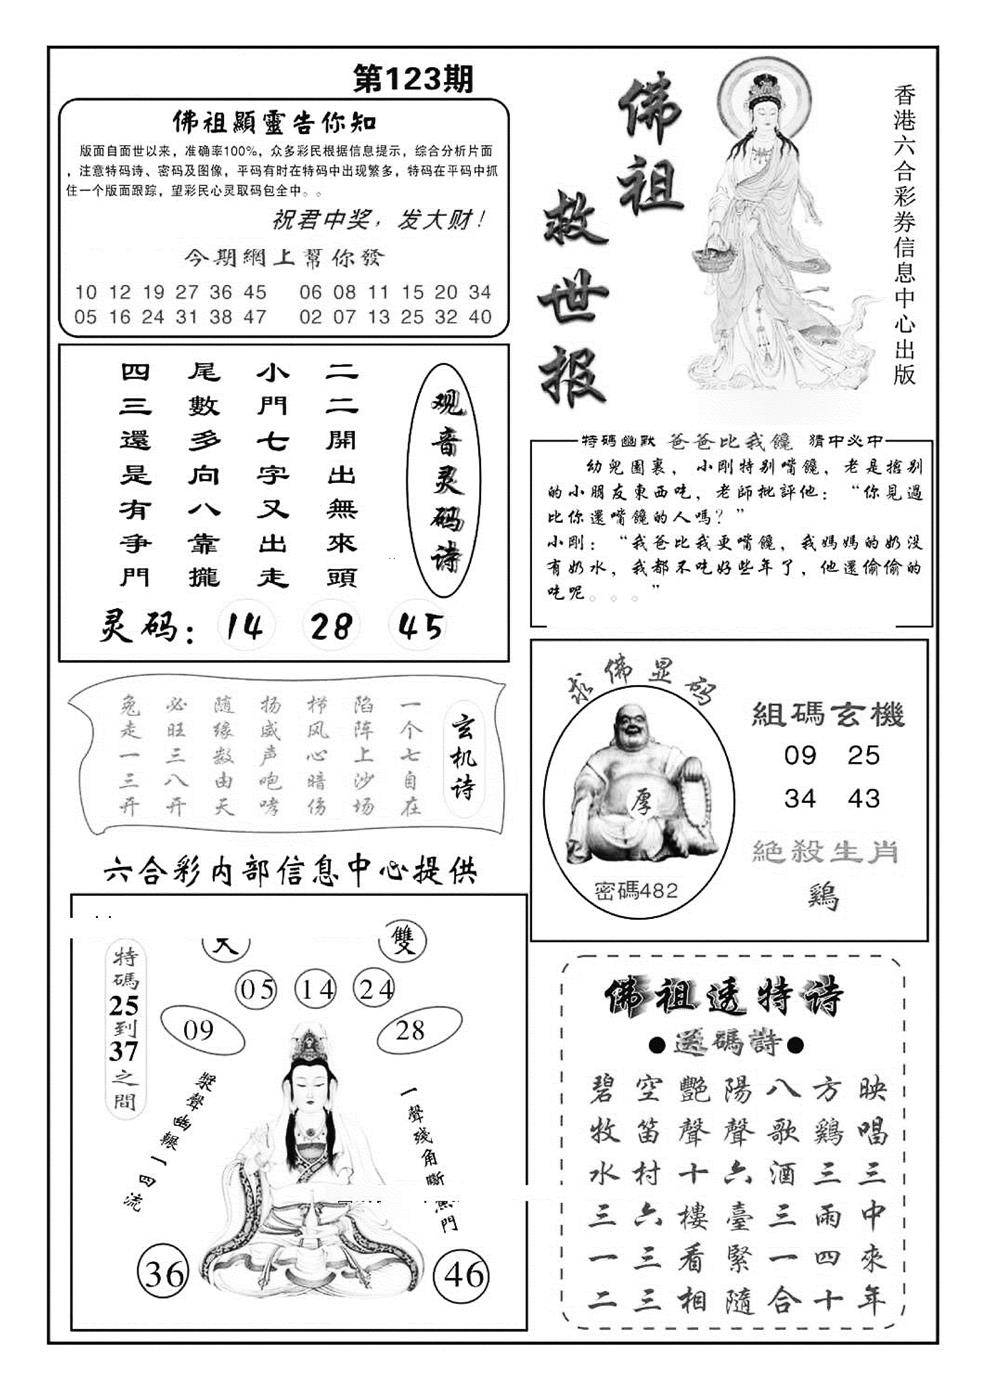 第123期
佛祖顯靈告你知
版面自面世以来，准确率100%，众多彩民根据信息提示，综合分析片面
，注意特码诗、密码及图像，平码有时在特码中出现繁多，特码在平码中抓
住一个版面跟踪，望彩民心灵取码包全中。。
祝君中奖，发大财！
今期網上幫你發
10 12 19 27 36 45 06 08 11 15 20 34
05 16 24 31 38 47 02 07 13 25 32 40
佛祖
救世报
香港六合彩券信息中心出版
观音灵码诗
二二開出無來頭
小門七字又出走
尾數多向八靠攏
四三還是有争門
灵码：14 28 45
特碼幽默 爸爸比我饞 猜中必中
幼兒園裏，小剛特别嘴饞，老是搶别
的小朋友東西吃，老師批評他：“你見過
比你還嘴饞的人嗎？”
小剛：“我爸比我更嘴饞，我媽媽的奶没
有奶水，我都不吃好些年了，他還偷偷的
吃呢。。。”
玄机诗
一个七自在
陷阵上沙场
梯风心暗伤
扬威声咆哮
随缘数由天
必旺三八开
兔走一三开
求佛显码
厚
密碼482
組碼玄機
09 25
34 43
絕殺生肖
鷄
六合彩内部信息中心提供
大
雙
05 14 24
09
28
特碼25到37之間
漿聲幽輾一四流
一聲殘角斷
門
36
46
佛祖透特诗
●送碼詩●
映唱三中來年
方鷄三雨四十
八歌酒三一合
陽聲六臺緊隨
艷聲十樓看相
空笛村六三三
碧牧水三一二